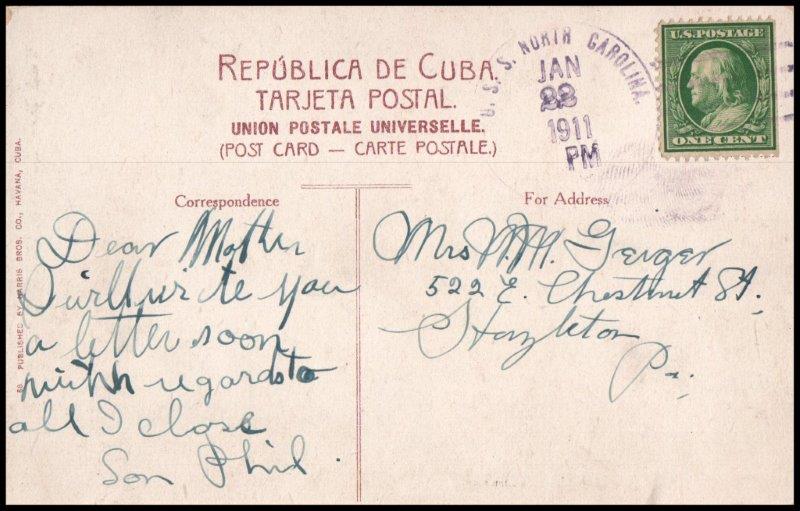 REPÚBLICA DE CUBA.
TARJETA POSTAL.
UNION POSTALE UNIVERSELLE.
(POST CARD — CARTE POSTALE.)
U. S. S. NORTH CAROLINA.
JAN
1911
PM
U.S. POSTAGE
ONE CENT
Correspondence
For Address
Dear Mother
I will write you
a letter soon
with regards to
all I close
Son Phil.
Mrs W.M. Gerger
522 E. Chestnut St.
Hazleton
Pa.
PUBLISHED BY HARRIS BROS. CO., HAVANA, CUBA.